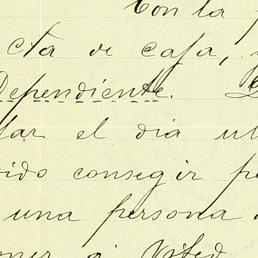 Con la
cta de caja,
Dependiente.
lar el día ul
ido consegir pe
una persona
oner a Usted